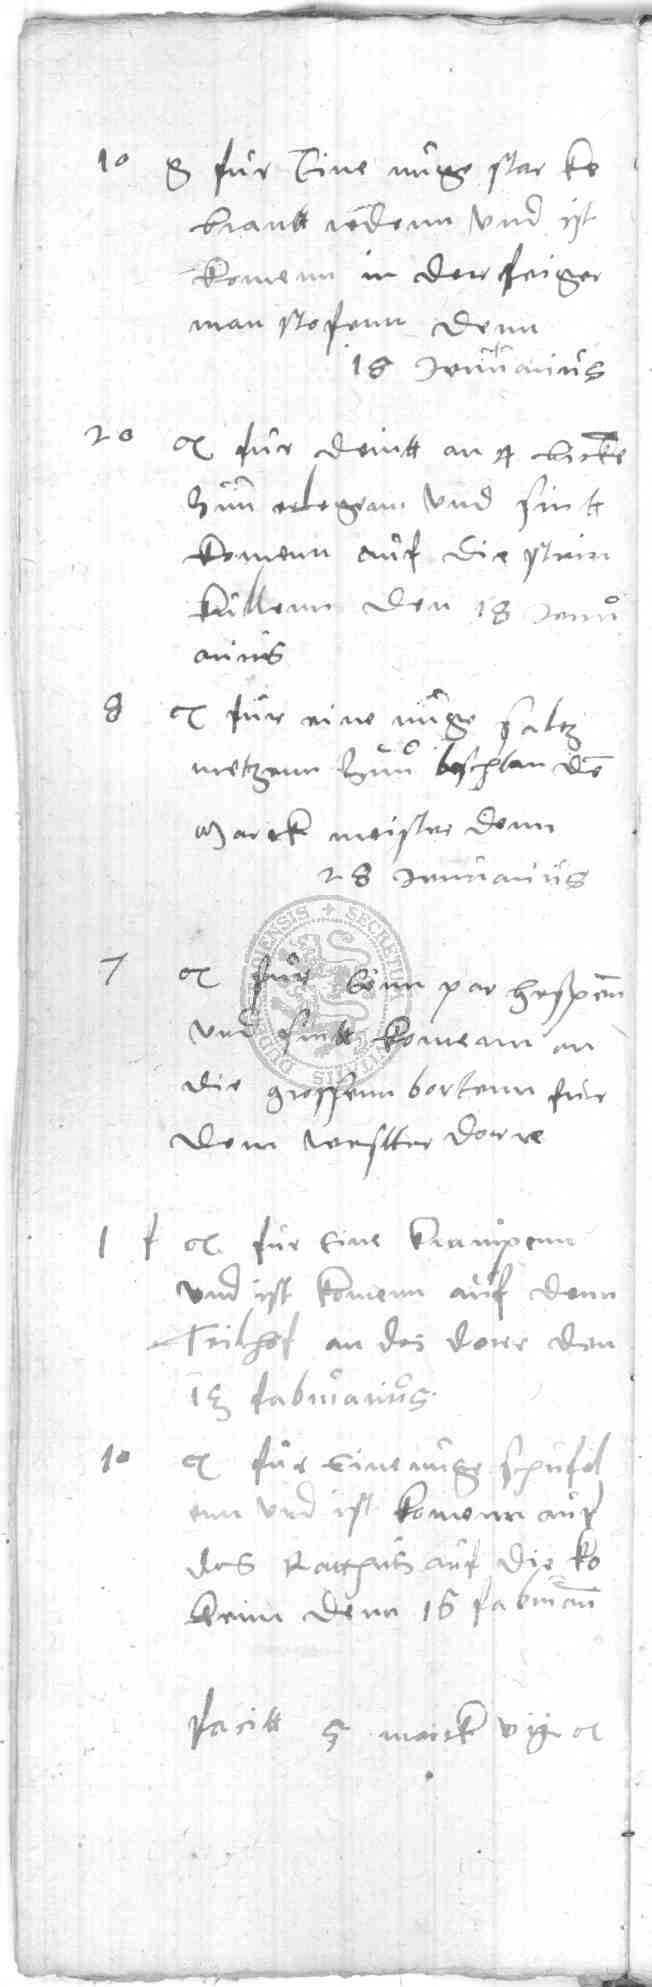 10 g für Eine nuge starke
brantt redenn Vnd ist
komenn in der feiger
man stofenn denn
18 Jenuarius
20 g für deintt an 4 bicke
zuu erlegenn Vnd sintt
komenn auf die stein
kullenn den 18 Jenu
arius
8 g für eine nuge saltz
metzenn zuu beschlan de
Marck meister denn
28 Jenuarius
7 g für Einn par hespenn
Vnd sintt komenn an
die grossenn portenn für
dem westter dorre
1 f g für Eine krampenn
Vnd ist komenn auf denn
an der dorre den
13 fabruarius
10 g für Eine nuge schufel
enn vnd ist komenn auf
des Ratthus auf die ko
kenn denn 16 fabruari
facitt 5 marck vij g
SECRETUM